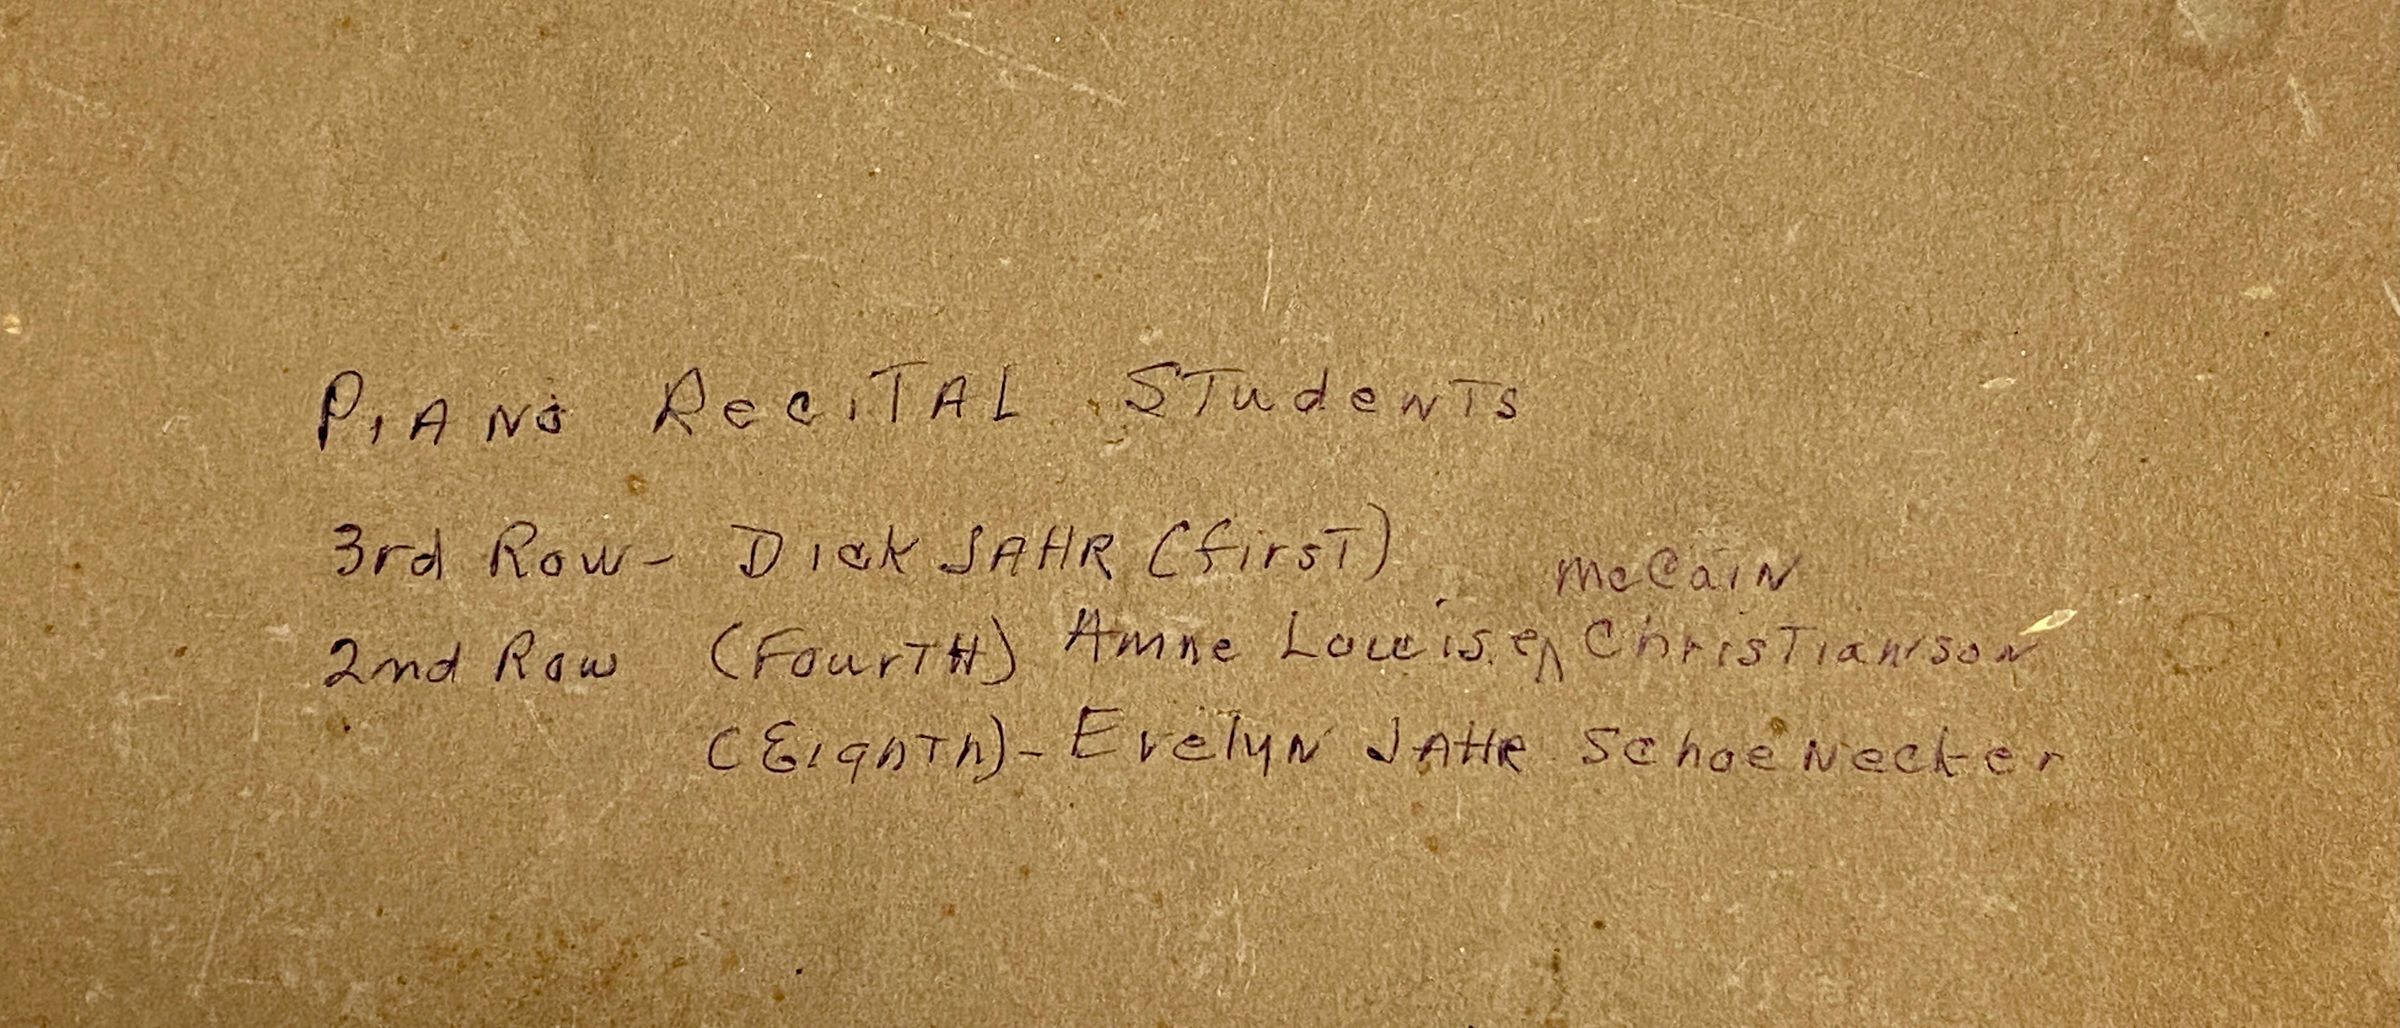 PIANO RecITAL STudeNTs
3rd Row- Dick JAHR (firsT)
McCaiN
2nd Row (FourTH) Anne Louise ^ ChrisTianson
(EighTh)- Evelyn JAHR SchoeNecker